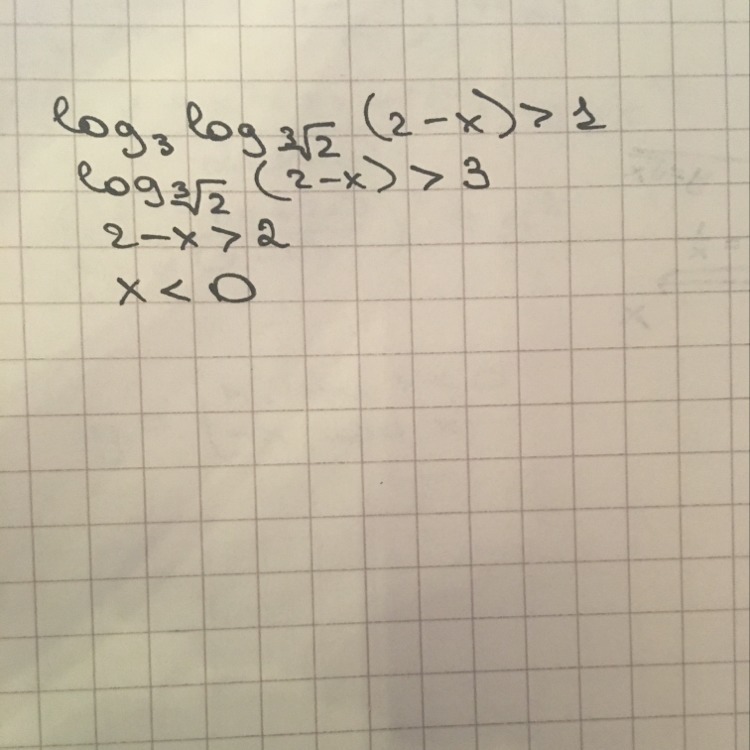 log₃ log_∛2 (2-x) > 1
log_∛2 (2-x) > 3
2-x > 2
x < 0